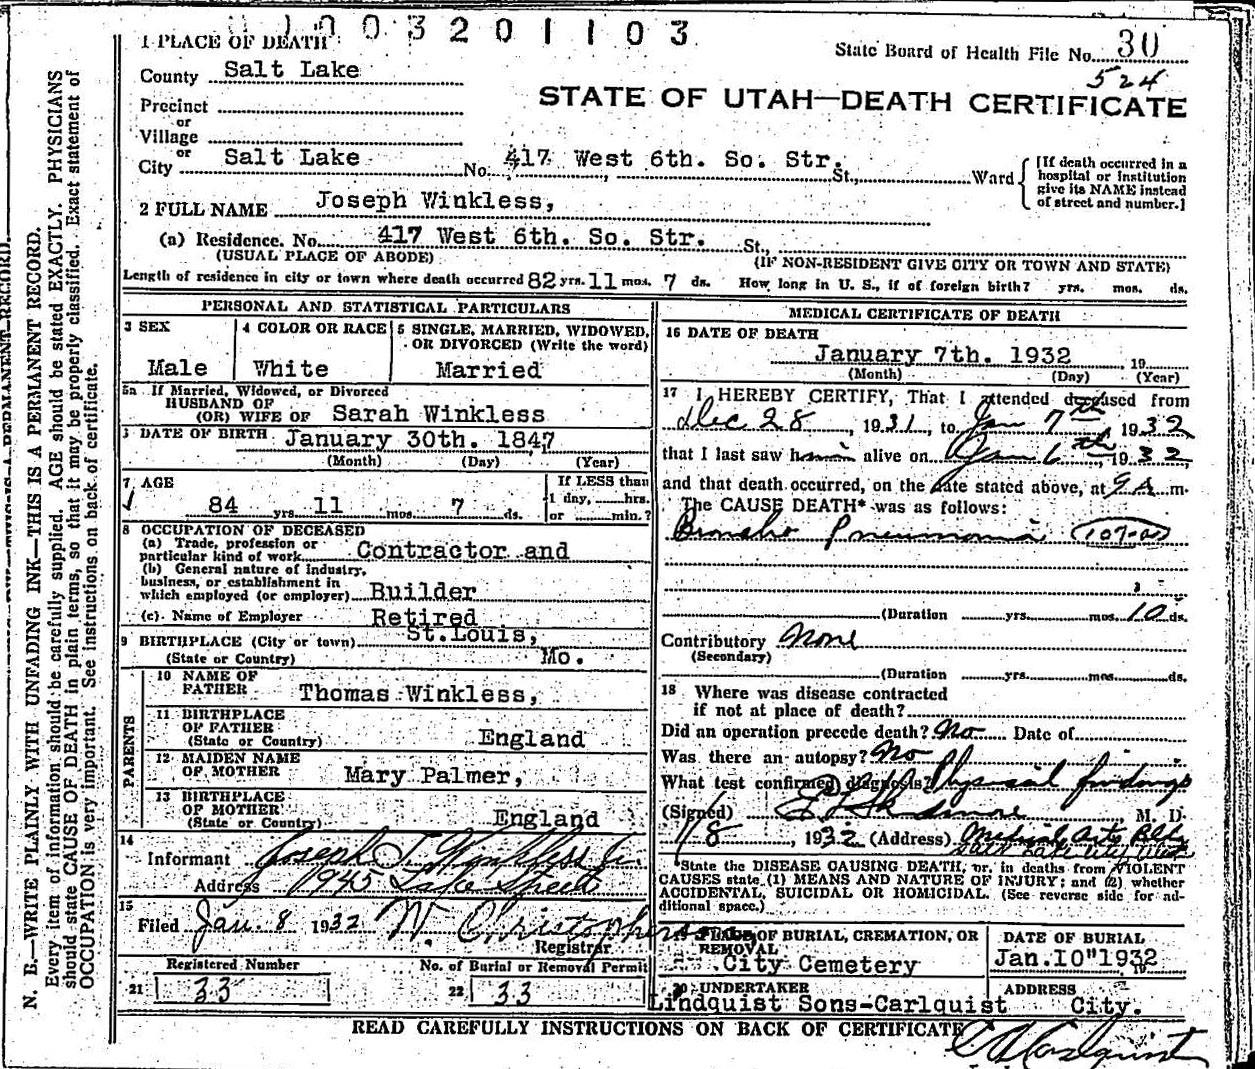 0 0 3 2 0 1 1 0 3
1 PLACE OF DEATH
State Board of Health File No. 30
County Salt Lake
524
STATE OF UTAH—DEATH CERTIFICATE
Precinct
or
Village
or
City Salt Lake No. 417 West 6th. So. Str. St., Ward
[If death occurred in a hospital or institution give its NAME instead of street and number.]
2 FULL NAME Joseph Winkless,
(a) Residence. No. 417 West 6th. So. Str. St.,
(USUAL PLACE OF ABODE) (IF NON-RESIDENT GIVE CITY OR TOWN AND STATE)
Length of residence in city or town where death occurred 82 yrs. 11 mos. 7 ds. How long in U. S., if of foreign birth? yrs. mos. ds.
PERSONAL AND STATISTICAL PARTICULARS
3 SEX
Male
4 COLOR OR RACE
White
5 SINGLE, MARRIED, WIDOWED, OR DIVORCED (Write the word)
Married
5a If Married, Widowed, or Divorced
HUSBAND OF
(OR) WIFE OF Sarah Winkless
DATE OF BIRTH January 30th. 1847
(Month) (Day) (Year)
7 AGE
84 yrs 11 mos. 7 ds.
If LESS than
1 day, hrs.
or min.?
8 OCCUPATION OF DECEASED
(a) Trade, profession or
particular kind of work Contractor and
(b) General nature of industry,
business, or establishment in
which employed (or employer) Builder
(c) Name of Employer Retired
9 BIRTHPLACE (City or town) St. Louis,
(State or Country) Mo.
PARENTS
10 NAME OF FATHER Thomas Winkless,
11 BIRTHPLACE OF FATHER
(State or Country) England
12 MAIDEN NAME OF MOTHER Mary Palmer,
13 BIRTHPLACE OF MOTHER
(State or Country) England
14
Informant Joseph T. Winkless Jr.
Address 1945 Lake Street
15
Filed Jan. 8 1932 W. Christopherson,
Registrar
Registered Number
21 33
No. of Burial or Removal Permit
22 33
MEDICAL CERTIFICATE OF DEATH
16 DATE OF DEATH
January 7th. 1932 19
(Month) (Day) (Year)
17 I HEREBY CERTIFY, That I attended deceased from
Dec 28, 1931, to Jan 7th 1932
that I last saw him alive on Jan 6th, 1932,
and that death occurred, on the date stated above, at 9 A. m.
The CAUSE DEATH* was as follows:
Broncho Pneumonia
(Duration yrs. mos. 10 ds.
Contributory None
(Secondary)
(Duration yrs. mos. ds.
18 Where was disease contracted
if not at place of death?
Did an operation precede death? No Date of
Was there an autopsy? No
What test confirmed diagnosis? Physical findings
(Signed) M. D.
1/8, 1932 (Address) Medical Arts Bldg
Salt Lake City Utah
*State the DISEASE CAUSING DEATH, or, in deaths from VIOLENT
CAUSES state (1) MEANS AND NATURE OF INJURY; and (2) whether
ACCIDENTAL, SUICIDAL OR HOMICIDAL. (See reverse side for additional space.)
19 PLACE OF BURIAL, CREMATION, OR REMOVAL
City Cemetery
DATE OF BURIAL
Jan. 10" 1932 19
20 UNDERTAKER
Lindquist Sons-Carlquist
ADDRESS
City.
READ CAREFULLY INSTRUCTIONS ON BACK OF CERTIFICATE
N. B.—WRITE PLAINLY WITH UNFADING INK—THIS IS A PERMANENT RECORD.
Every item of information should be carefully supplied. AGE should be stated EXACTLY. PHYSICIANS
should state CAUSE OF DEATH in plain terms, so that it may be properly classified. Exact statement of
OCCUPATION is very important. See instructions on back of certificate.